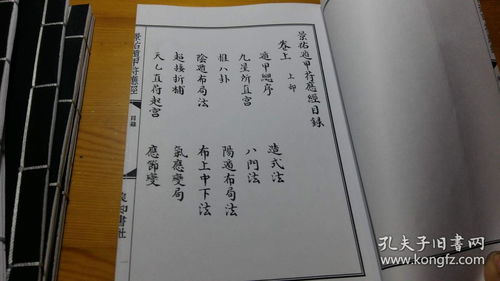 景佑遁甲符應經目錄
卷上 上部
遁甲總序 造式法
九星所直宮 八門法
推八卦 陽遁布局法
陰遁布局法 布上中下法
超接折補 氣應變局
天乙直符起宮 應節變
景佑遁甲符應經
目錄
孔夫子旧书网
www.kongfz.com